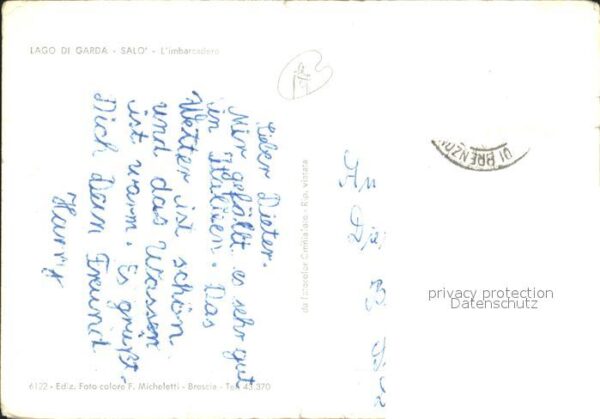 LAGO DI GARDA - SALO' - L'imbarcadero
Lieber Dieter.
Mir gefällt es sehr gut
in Italien. Das
Wetter ist schön
und das Wasser
ist warm. Es grüßt
Dich Dein Freund
Harry
da Fotocolor - Rip. vietata
An
DI BRENZON
privacy protection
Datenschutz
6122 - Ediz. Foto colore F. Micheletti - Brescia - Tel. 43.370